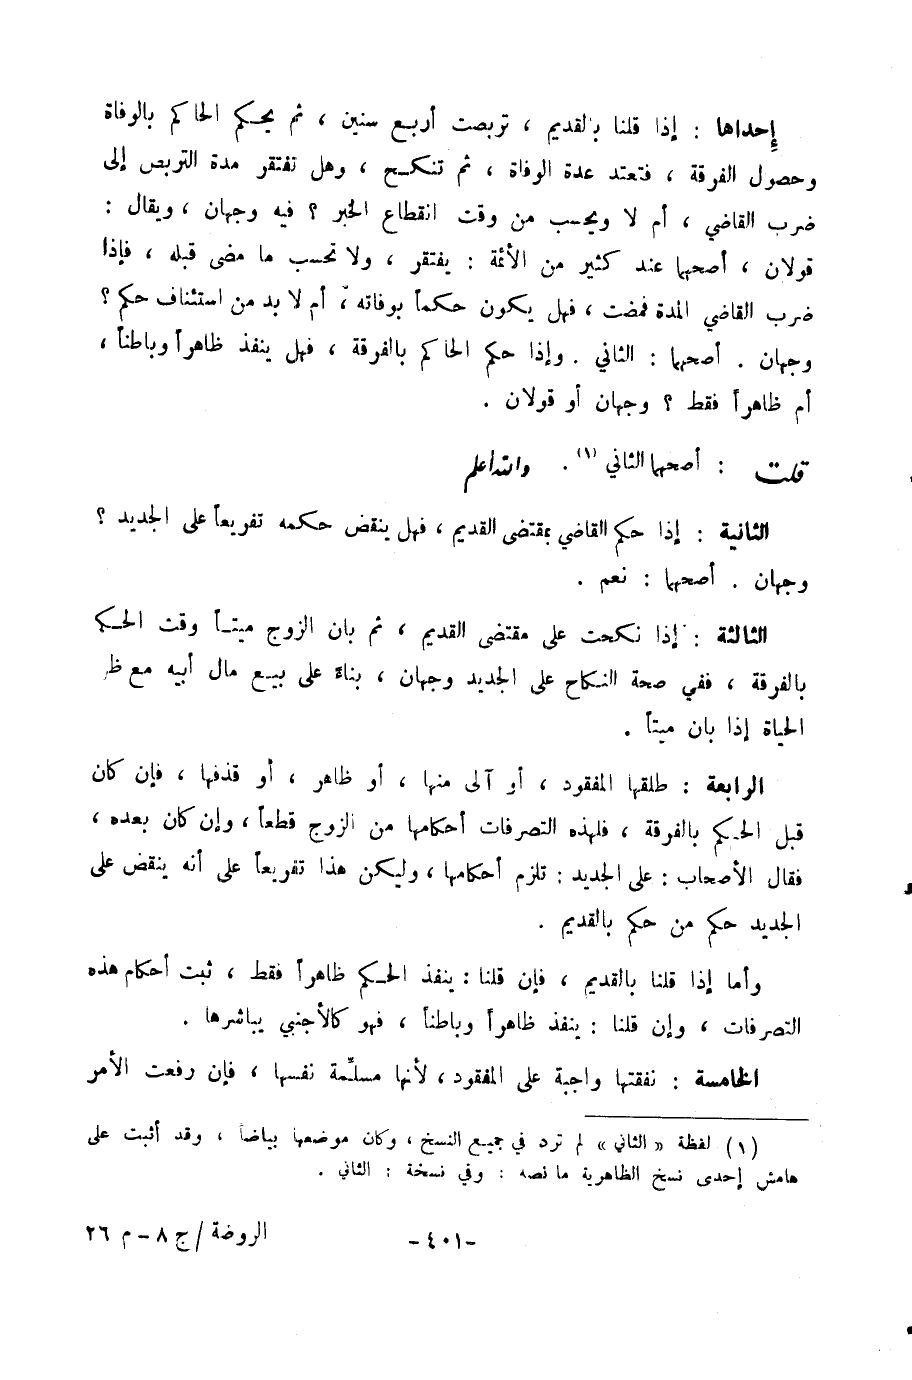 إحداها : إذا قلنا بالقديم ، تربصت أربع سنين ، ثم يحكم الحاكم بالوفاة
وحصول الفرقة ، فتعتد عدة الوفاة ، ثم تنكح ، وهل تفتقر مدة التربص إلى
ضرب القاضي ، أم لا ويحسب من وقت انقطاع الخبر ؟ فيه وجهان ، ويقال :
قولان ، أصحهما عند كثير من الأئمة : يفتقر ، ولا تحسب ما مضى قبله ، فإذا
ضرب القاضي المدة فمضت ، فهل يكون حكماً بوفاته ، أم لا بد من استئناف حكم ؟
وجهان . أصحهما : الثاني . وإذا حكم الحاكم بالفرقة ، فهل ينفذ ظاهراً وباطناً ،
أم ظاهراً فقط ؟ وجهان أو قولان .
قلت : أصحهما الثاني (١) . والله أعلم
الثانية : إذا حكم القاضي بمقتضى القديم ، فهل ينقض حكمه تفريعاً على الجديد ؟
وجهان . أصحهما : نعم .
الثالثة : إذا نكحت على مقتضى القديم ، ثم بان الزوج ميتاً وقت الحكم
بالفرقة ، ففي صحة النكاح على الجديد وجهان ، بناءً على بيع مال أبيه مع
الحياة إذا بان ميتاً .
الرابعة : طلقها المفقود ، أو آلى منها ، أو ظاهر ، أو قذفها ، فإن كان
قبل الحكم بالفرقة ، فلهذه التصرفات أحكامها من الزوج قطعاً ، وإن كان بعده ،
فقال الأصحاب : على الجديد : تلزم أحكامها ، وليكن هذا تفريعاً على أنه ينقض على
الجديد حكم من حكم بالقديم .
وأما إذا قلنا بالقديم ، فإن قلنا : ينفذ الحكم ظاهراً فقط ، ثبت أحكام هذه
التصرفات ، وإن قلنا : ينفذ ظاهراً وباطناً ، فهو كالأجنبي يباشرها .
الخامسة : نفقتها واجبة على المفقود ، لأنها مسلِّمة نفسها ، فإن رفعت الأمر
(١) لفظة « الثاني » لم ترد في جميع النسخ ، وكان موضعها بياضاً ، وقد أثبت على
هامش إحدى نسخ الظاهرية ما نصه : وفي نسخة : الثاني .
-٤٠١- الروضة / ج ٨ - م ٢٦